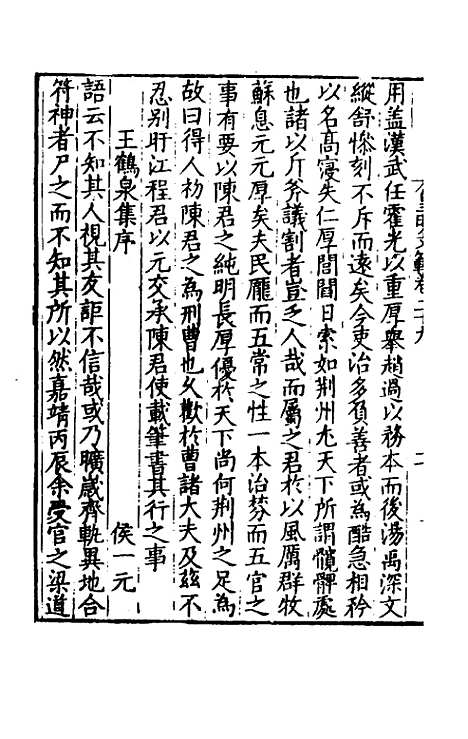 用盖漢武任霍光以重厚舉趙過以務本而後湯禹深文
縱舒慘刻不斥而遠矣今吏治多負善者或為酷急相矜
以名高寖失仁厚閭閻日索如荆州尤天下所謂髖髀處
也諸以斤斧議割者豈乏人哉而屬之君於以風厲群牧
蘇息元元厚矣夫民龐而五常之性一本治棼而五官之
事有要以陳君之純明長厚優於天下尚何荆州之足為
故曰得人初陳君之為刑曹也乆歡於曹諸大夫及兹不
忍别盱江程君以元交承陳君使載筆書其行之事
王鶴泉集序
侯一元
語云不知其人視其友詎不信哉或乃曠嵗齊軌異地合
符神者尸之而不知其所以然嘉靖丙辰余受官之梁道